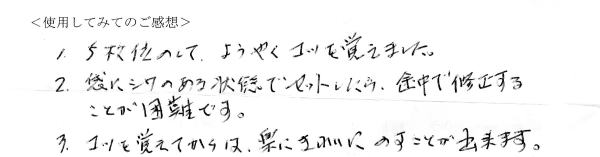 ＜使用してみてのご感想＞
1. 5枚位のして、ようやくコツを覚えました。
2. 袋にシワのある状態でセットしたら、途中で修正する
ことが困難です。
3. コツを覚えてからは、楽にきれいにのすことが出来ます。